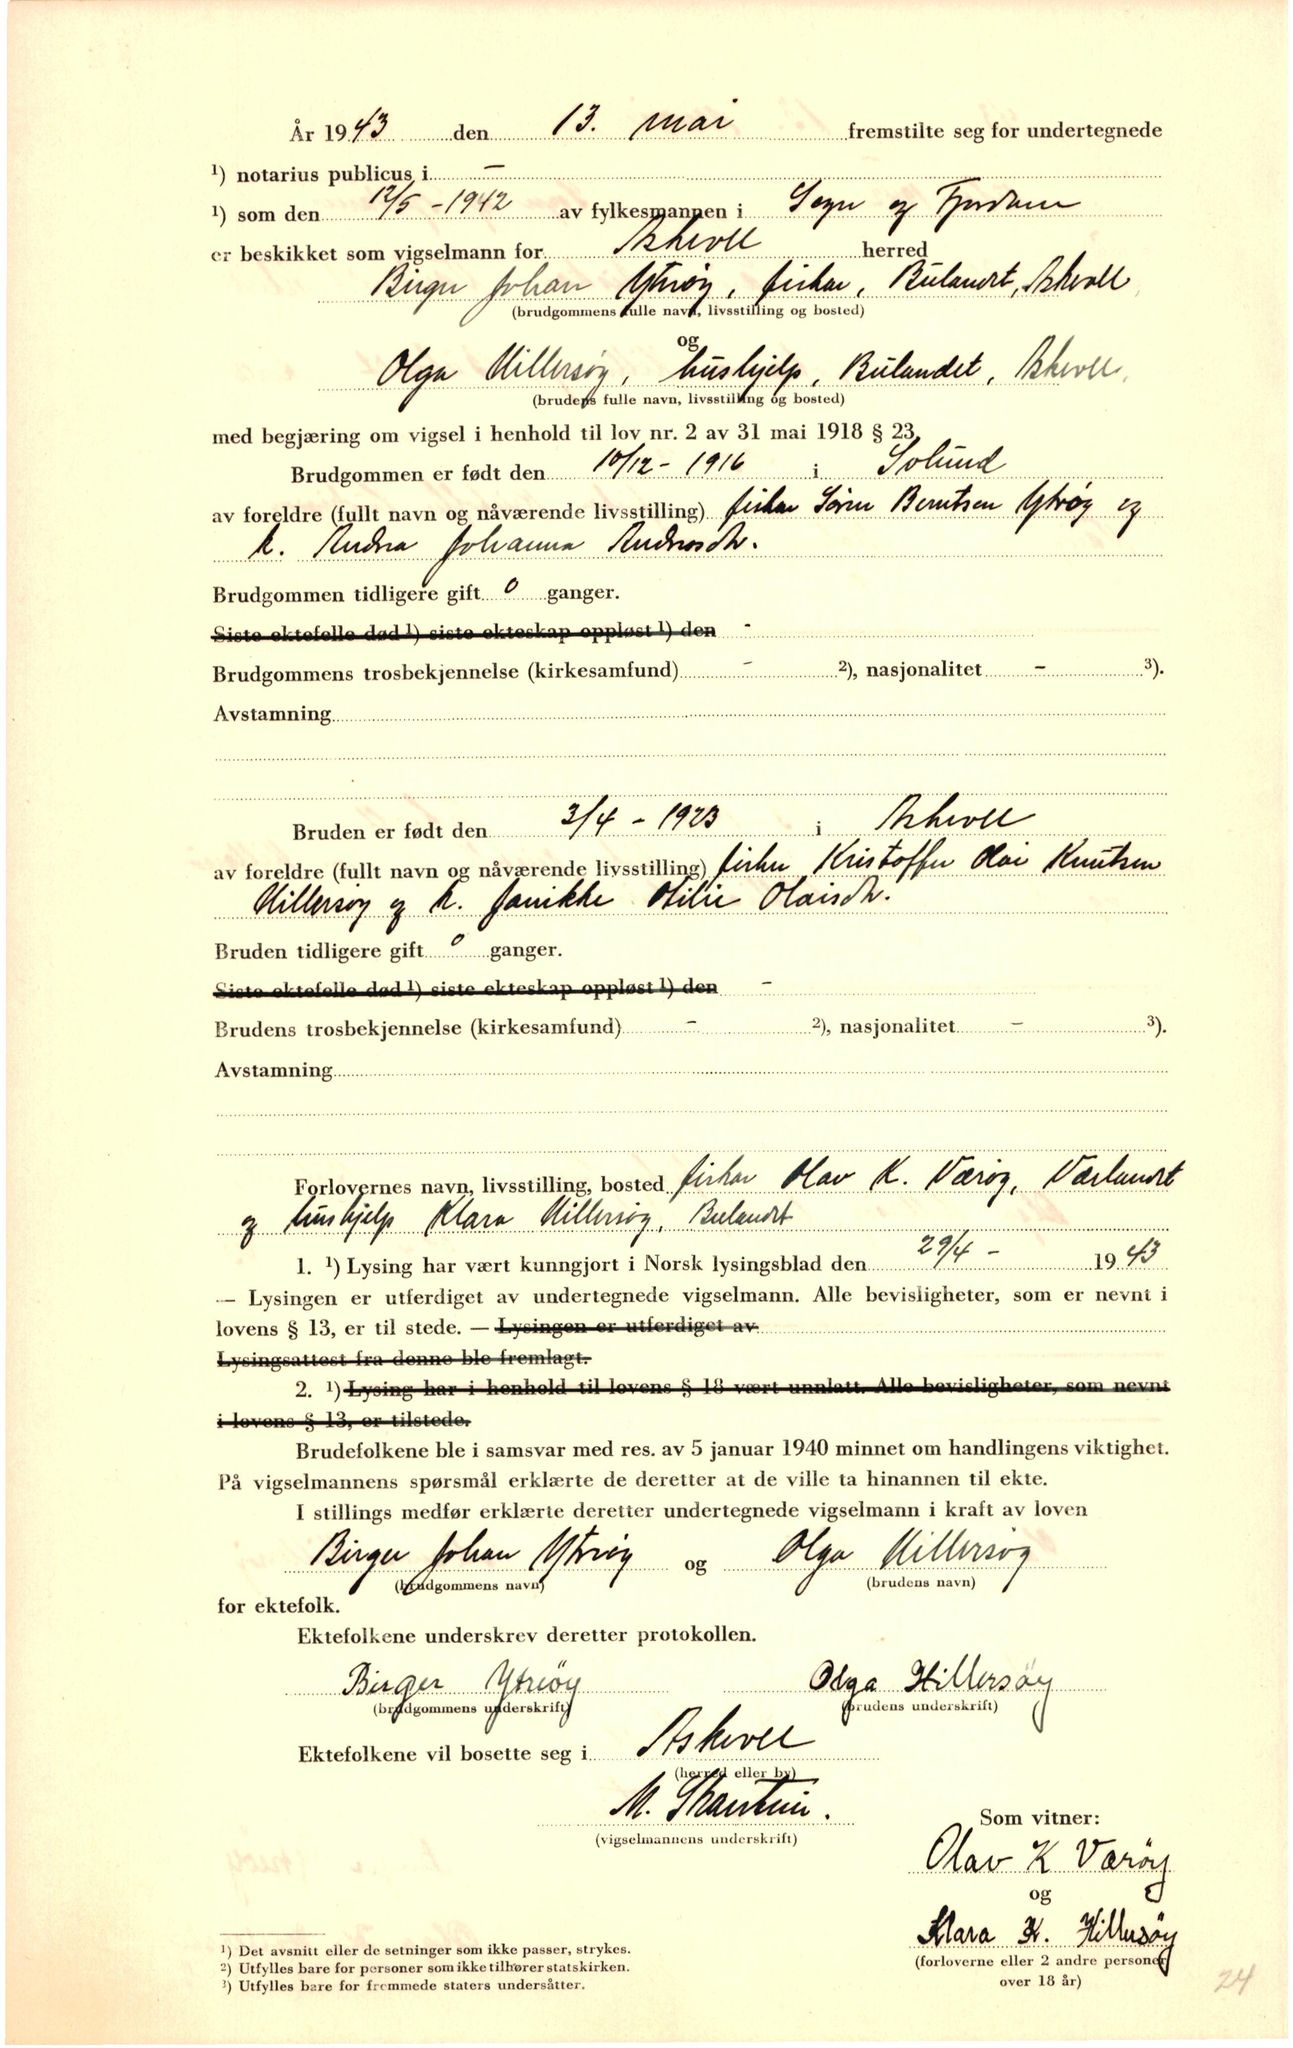 År 1943 den 13. mai fremstilte seg for undertegnede
1) notarius publicus i –
1) som den 12/5 – 1942 av fylkesmannen i Sogn og Fjordane
er beskikket som vigselmann for Askvoll herred
Birger Johan Ytrøy, fisker, Bulandet, Askvoll
(brudgommens fulle navn, livsstilling og bosted)
og
Olga Hillersøy, hushjelp, Bulandet, Askvoll,
(brudens fulle navn, livsstilling og bosted)
med begjæring om vigsel i henhold til lov nr. 2 av 31 mai 1918 § 23
Brudgommen er født den 10/12 – 1916 i Solund
av foreldre (fullt navn og nåværende livsstilling) fisker Søren Berntsen Ytrøy og
k. Andrea Johanna Andreasdtr.
Brudgommen tidligere gift 0 ganger.
Siste ektefelle død 1) siste ekteskap oppløst 1) den -
Brudgommens trosbekjennelse (kirkesamfund) – 2), nasjonalitet – 3).
Avstamning
Bruden er født den 3/4 – 1923 i Askvoll
av foreldre (fullt navn og nåværende livsstilling) fisker Kristoffer Olai Knutsen
Hillersøy og k. Janikke Otilie Olaisdtr.
Bruden tidligere gift 0 ganger.
Siste ektefelle død 1) siste ekteskap oppløst 1) den –
Brudens trosbekjennelse (kirkesamfund) – 2), nasjonalitet – 3).
Avstamning
Forlovernes navn, livsstilling, bosted fisker Olav K. Værøy, Værlandet
og hushjelp Klara Hillersøy, Bulandet
1. 1) Lysing har vært kunngjort i Norsk lysingsblad den 29/4 – 1943
— Lysingen er utferdiget av undertegnede vigselmann. Alle bevisligheter, som er nevnt i
lovens § 13, er til stede. — Lysingen er utferdiget av
Lysingsattest fra denne ble fremlagt.
2. 1) Lysing har i henhold til lovens § 18 vært unnlatt. Alle bevisligheter, som nevnt
i lovens § 13, er tilstede.
Brudefolkene ble i samsvar med res. av 5 januar 1940 minnet om handlingens viktighet.
På vigselmannens spørsmål erklærte de deretter at de ville ta hinannen til ekte.
I stillings medfør erklærte deretter undertegnede vigselmann i kraft av loven
Birger Johan Ytrøy og Olga Hillersøy
(brudgommens navn) (brudens navn)
for ektefolk.
Ektefolkene underskrev deretter protokollen.
Birger Ytreøy Olga Hillersøy
(brudgommens underskrift) (brudens underskrift)
Ektefolkene vil bosette seg i Askvoll
(herred eller by)
M.
(vigselmannens underskrift)
Som vitner:
Olav K Værøy
og
Klara K. Hillersøy
(forloverne eller 2 andre personer
over 18 år)
1) Det avsnitt eller de setninger som ikke passer, strykes.
2) Utfylles bare for personer som ikke tilhører statskirken.
3) Utfylles bare for fremmede staters undersåtter.
24